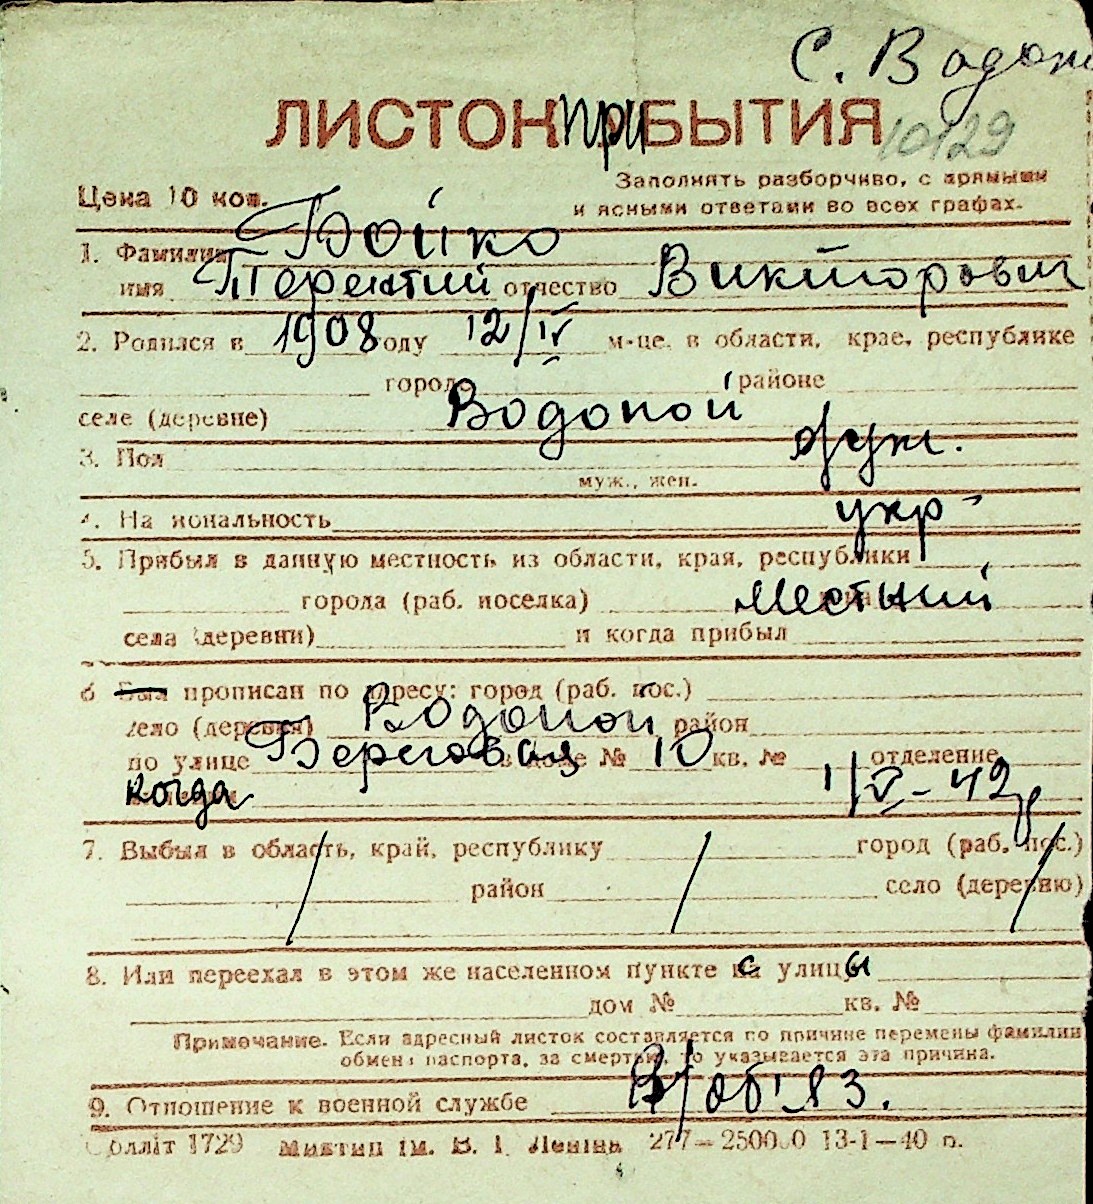 С. Водоп
ЛИСТОК ПРИБЫТИЯ
10129
Заполнять разборчиво, с прямыми
Цена 10 коп.
и ясными ответами во всех графах.
1. Фамилия Бойко
имя Терентий отчество Викторович
2. Родился в 1908 году 12/IV м-це, в области, крае, республике
городе районе
селе (деревне) Водопой
3. Пол муж.
муж., жен.
4. Национальность укр
5. Прибыл в данную местность из области, края, республики
города (раб. поселка) Местний
села (деревни) и когда прибыл
6 Был прописан по адресу: город (раб. пос.)
село (деревня) Водопой район
по улице Береговая в доме № 10 кв. № отделение
когда 1/V-42г
7. Выбыл в область, край, республику город (раб. пос.)
район село (деревню)
8. Или переехал в этом же населенном пункте с улицы
дом № кв. №
Примечание. Если адресный листок составляется по причине перемены фамилии
обмена паспорта, за смертью, то указывается эта причина.
9. Отношение к военной службе В/об.
Облліт 1729 ім. В. І. Леніна 277—250000 13-1—40 п.